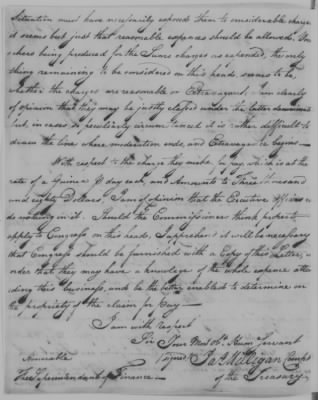 Situation must have necessarily exposed them to considerable charge
it seems but just that reasonable expences should be allowed. Vou
chers being produced for the Sums charged as expended, the only
thing remaining to be considered on this head, seems to be,
whether the charges are reasonable or Extravagant. I am clearly
of opinion that they may be justly classed under the latter denomina
but, in cases so peculiarly circumstanced it is rather difficult to
draw the line where moderation ends, and Extravagance begins —
With respect to the charge they make for pay, which is at the
rate of a Guinea P day each, and Amounts to Three thousand
and eighty Dollars I am of opinion that the Executive Officers
do nothing in it. Should the Commissioners think proper to
apply to Congress on this head, I apprehend it will be necessary
that Congress should be furnished with a Copy of this Letter, in
order that they may have a knowledge of the whole expence atten
ding this business, and be the better enabled to determine on
the propriety of the claim for Pay —
I am with respect
Sir Your Most Ob. Hum. Servant
signed Ja. Milligan Comp.
of the Treasury
Honorable
The Superintendant of Finance —